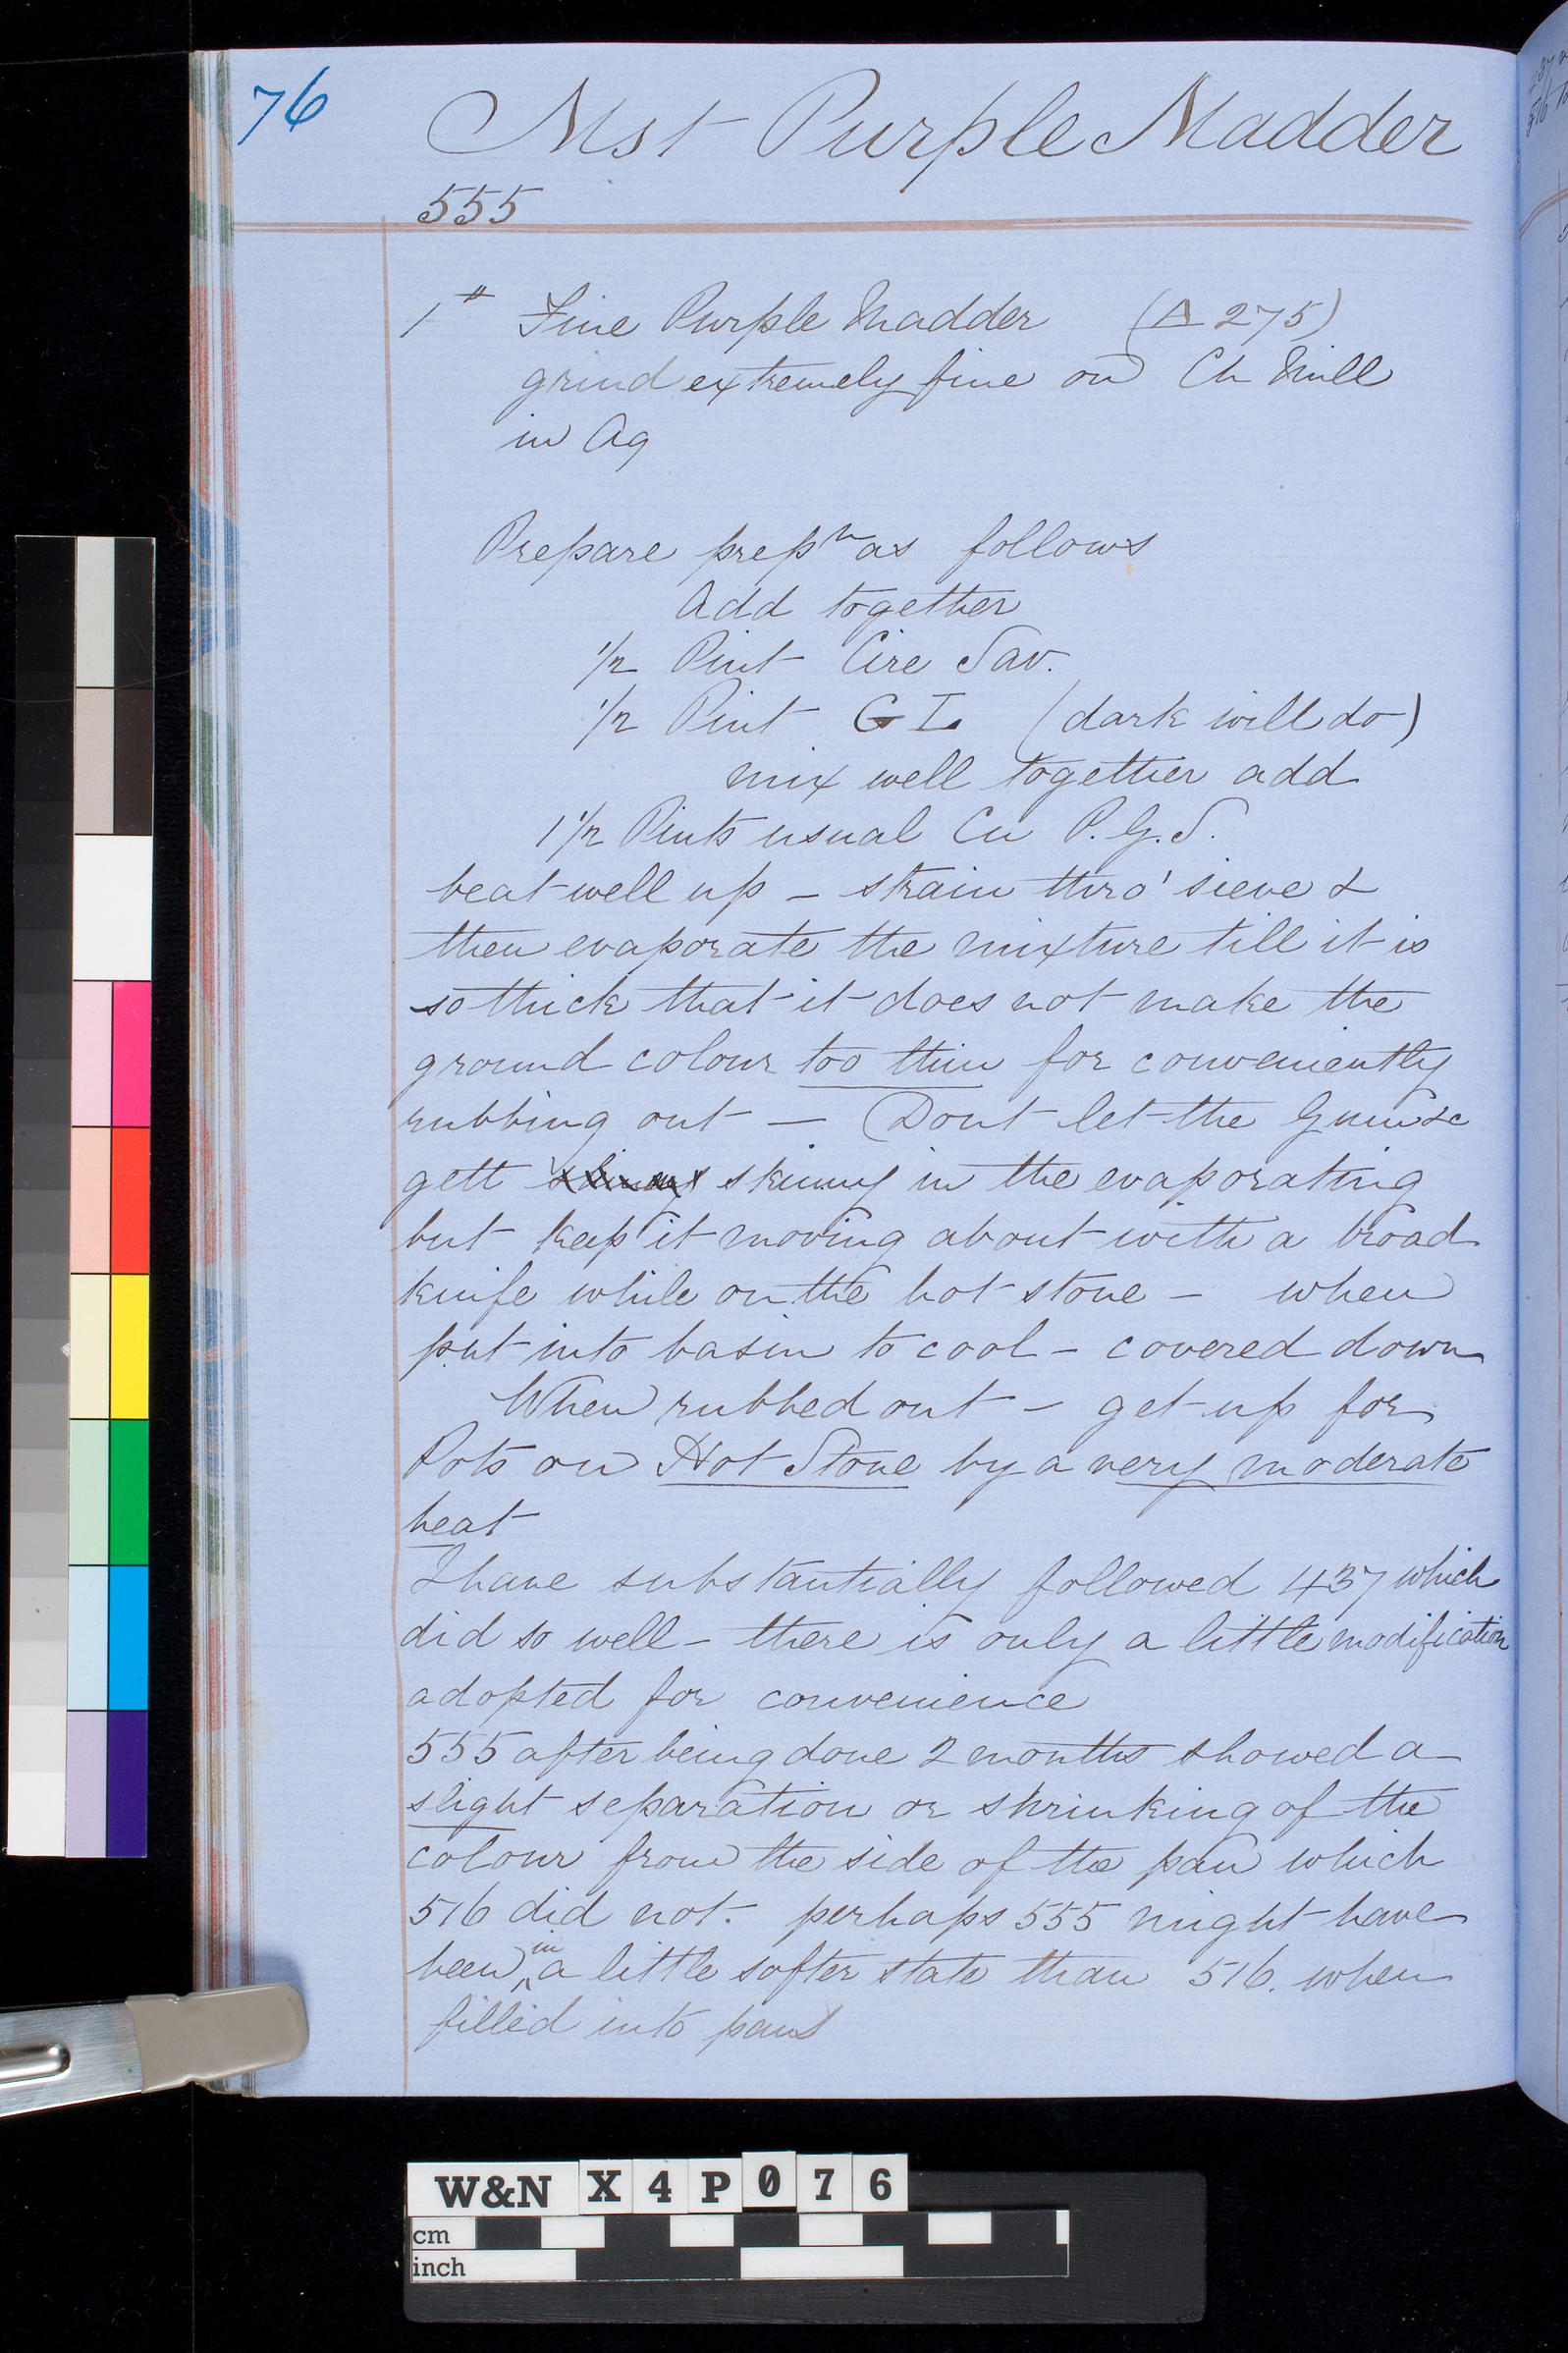 76
Mst Purple Madder
555
1 # Fine Purple Madder (Δ 275)
grind extremely fine on Ch Mill
in Aq
Prepare prepn as follows
Add together
1/2 Pint Cire Sav.
1/2 Pint G L (dark will do)
mix well together add
1 1/2 Pints usual Cu P.G.S.
beat well up - strain thro' sieve &
then evaporate the mixture till it is
so thick that it does not make the
ground colour too thin for conveniently
rubbing out — Dont let the Gum &c
gett skinny in the evaporating
but keep it moving about with a broad
knife while on the hot stone - when
put into basin to cool - covered down
When rubbed out - get up for
Pots on Hot Stone by a very moderate
heat
I have substantially followed 437 which
did so well - there is only a little modification
adopted for convenience
555 after being done 2 months showed a
slight separation or shrinking of the
colour from the side of the pan which
516 did not. perhaps 555 might have
been in a little softer state than 516. when
filled into pans
W&N X4P076
cm
inch